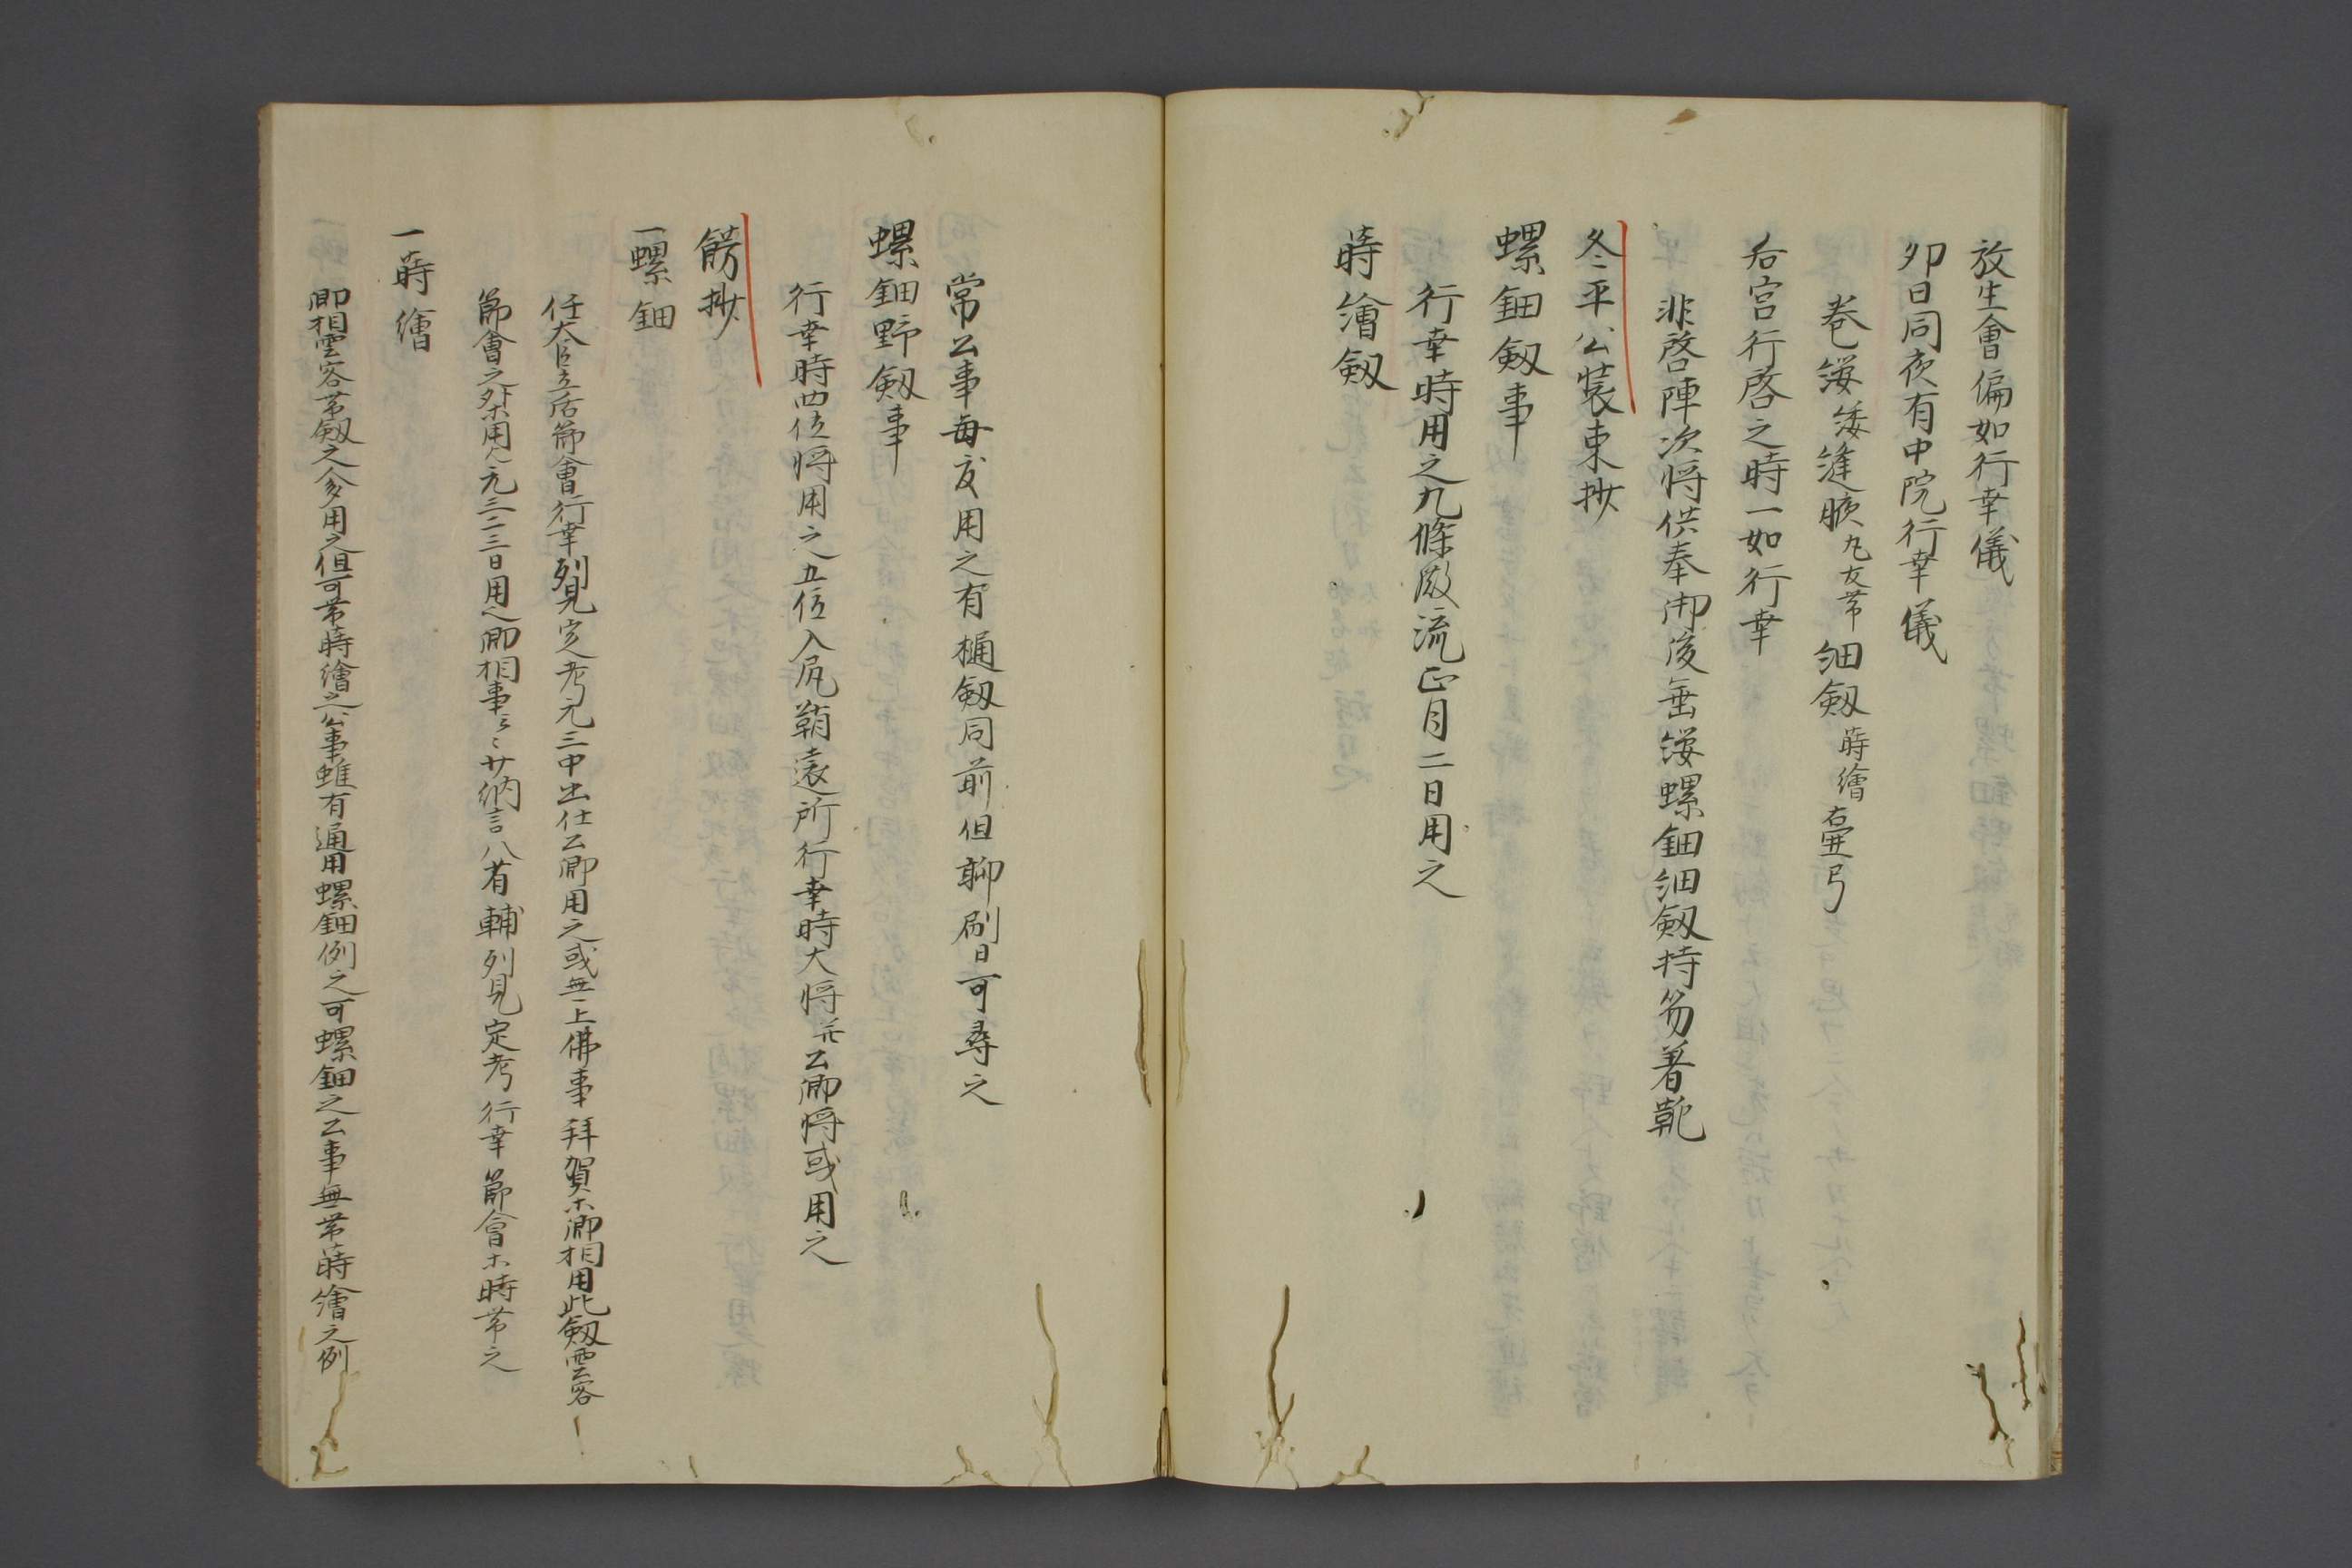 放生會偏如行幸儀
卯日同夜有中院行幸儀
巻纓緌縫腋丸友帯細剱蒔繪壷弓
后宮行啓之時一如行幸
非啓陣次将供奉御後垂纓螺鈿細剱持笏著靴
冬平公裝束抄
螺鈿剱事
行幸時用之九條殿流正月二日用之
蒔繪剱
常公事毎度用之有樋剱同前但聊刷日可尋之
螺鈿野剱事
行幸時四位将用之五位入尻鞘遠所行幸時大将并公卿将或用之
餝抄
一螺鈿
任大臣立后節會行幸列見定考元三中出仕公卿用之或無上佛事拜賀木卿相用此剱雲客
節會之外不用之元三二三日用之卿相事々少納言八省輔列見定考行幸節會木時帯之
一蒔繪
卿相雲客帯剱之人多用之但可帯蒔繪之公事雖有通用螺鈿例之可螺鈿之公事無帯蒔繪之例